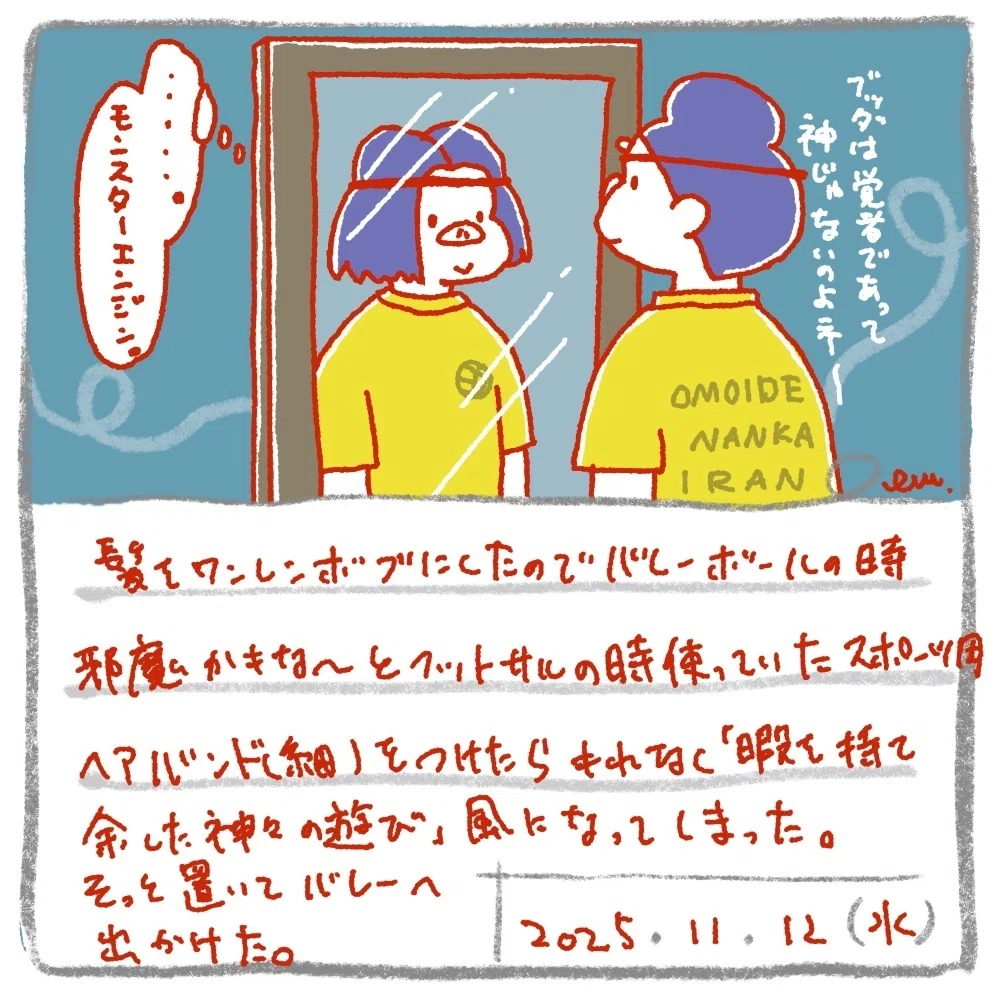 ブッダは覚者であって
神じゃないのよネー
・・・・・・。
モンスターエンジン。
OMOIDE
NANKA
IRAN
em.
髪をワンレンボブにしたのでバレーボールの時
邪魔かきな〜とフットサルの時使っていたスポーツ用
ヘアバンド(細)をつけたらもれなく「暇を持て
余した神々の遊び」風になってしまった。
そっと置いてバレーへ
出かけた。
2025.11.12(水)